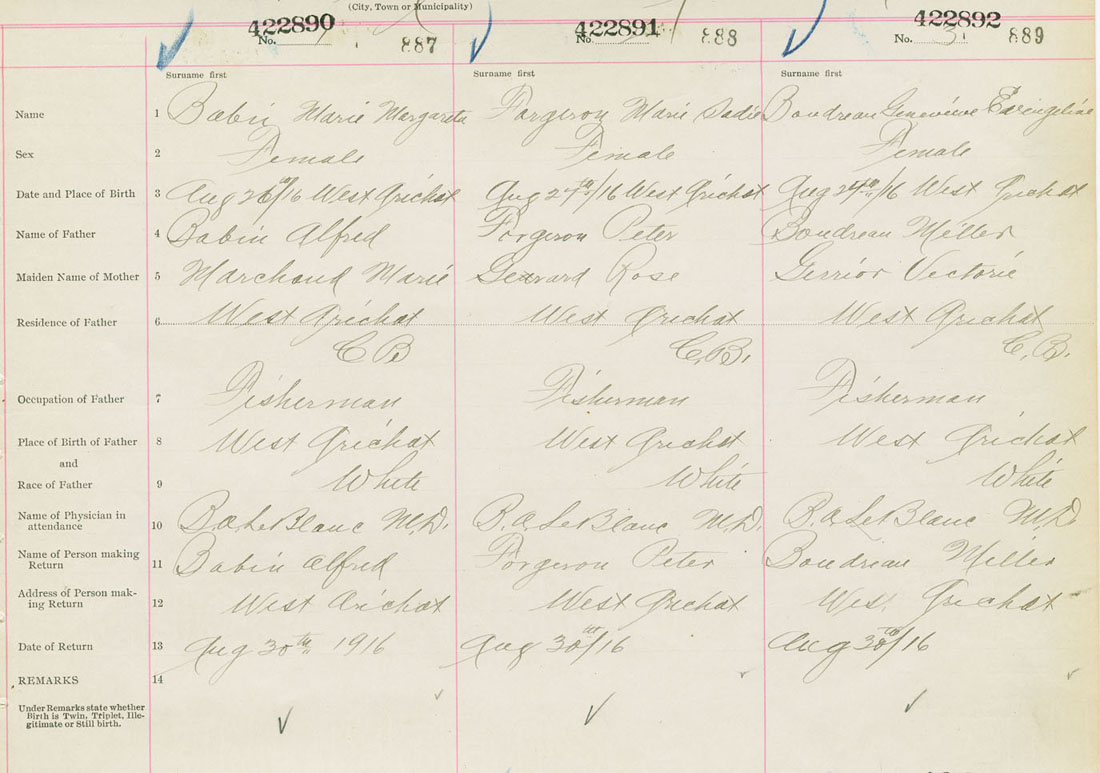 (City, Town or Municipality)
422890 422891 422892
No. 1 887 No. 2 888 No. 3 889
Surname first Surname first Surname first
Name 1 Babin Marie Margareta Forgeron Marie Sadie Boudreau Genevieve Evangeline
Sex 2 Female Female Female
Date and Place of Birth 3 Aug 26th/16 West Arichat Aug 27th/16 West Arichat Aug 27th/16 West Arichat
Name of Father 4 Babin Alfred Forgeron Peter Boudreau Miller
Maiden Name of Mother 5 Marchand Marie Rose Gerrior Victorie
Residence of Father 6 West Arichat West Arichat West Arichat
C B C.B. C.B.
Occupation of Father 7 Fisherman Fisherman Fisherman
Place of Birth of Father 8 West Arichat West Arichat West Arichat
and
Race of Father 9 White White White
Name of Physician in attendance 10 B.A. LeBlanc M.D. B.A. LeBlanc M.D. B.A. LeBlanc M.D.
Name of Person making Return 11 Babin Alfred Forgeron Peter Boudreau Miller
Address of Person mak-
ing Return 12 West Arichat West Arichat West Arichat
Date of Return 13 Aug 30th 1916 Aug 30th/16 Aug 30th/16
REMARKS 14
Under Remarks state whether
Birth is Twin, Triplet, Ille-
gitimate or Still birth.